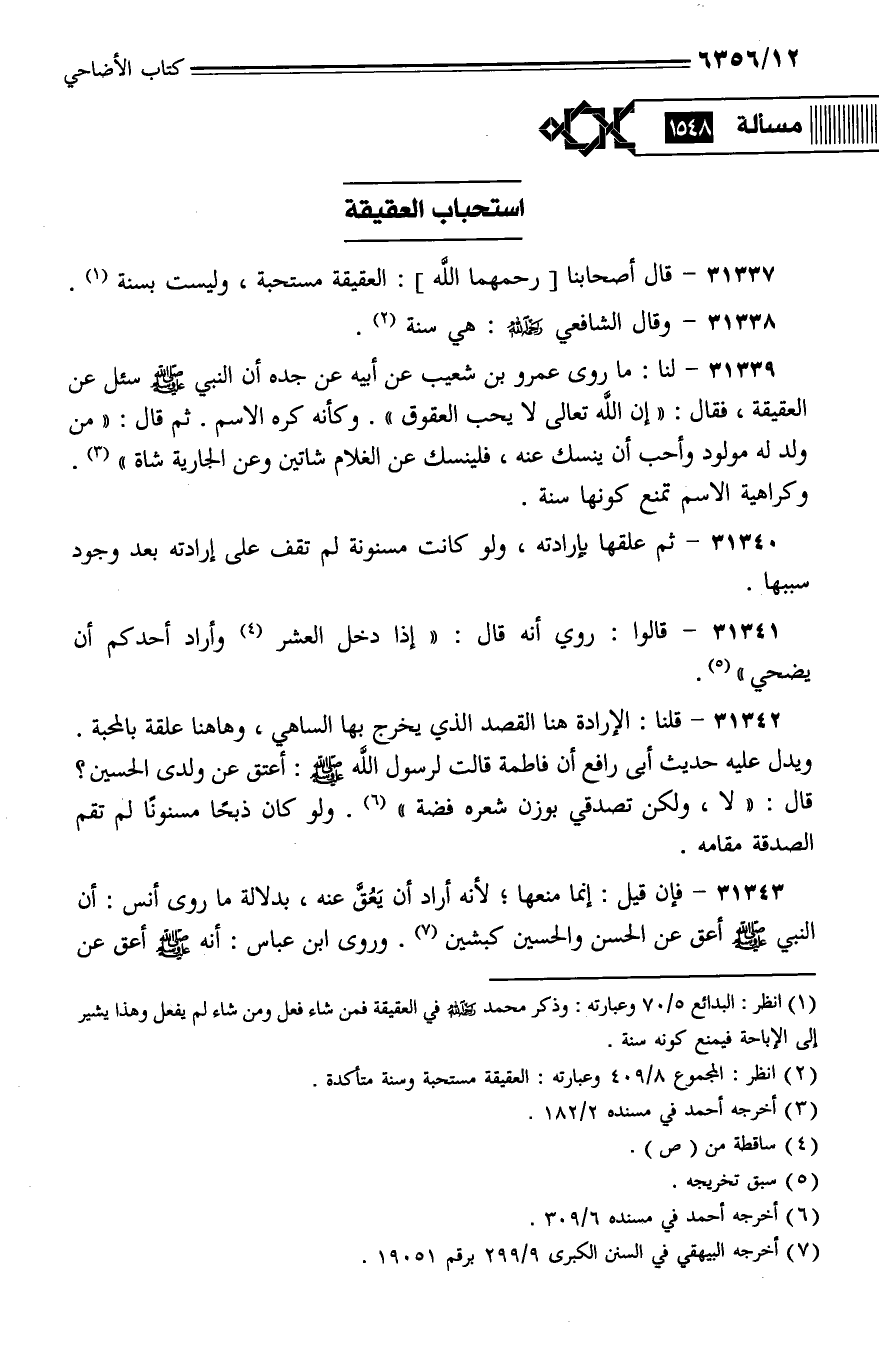 ٦٣٥٦/١٢ كتاب الأضاحي
مسألة ١٥٤٨
استحباب العقيقة
٣١٣٣٧ – قال أصحابنا [ رحمهما اللَّه ] : العقيقة مستحبة ، وليست بسنة (١) .
٣١٣٣٨ – وقال الشافعي رحمه الله : هي سنة (٢) .
٣١٣٣٩ – لنا : ما روى عمرو بن شعيب عن أبيه عن جده أن النبي ﷺ سئل عن
العقيقة ، فقال : « إن اللَّه تعالى لا يحب العقوق » . وكأنه كره الاسم . ثم قال : « من
ولد له مولود وأحب أن ينسك عنه ، فلينسك عن الغلام شاتين وعن الجارية شاة » (٣) .
وكراهية الاسم تمنع كونها سنة .
٣١٣٤٠ – ثم علقها بإرادته ، ولو كانت مسنونة لم تقف على إرادته بعد وجود
سببها .
٣١٣٤١ – قالوا : روي أنه قال : « إذا دخل العشر (٤) وأراد أحدكم أن
يضحي » (٥) .
٣١٣٤٢ – قلنا : الإرادة هنا القصد الذي يخرج بها الساهي ، وهاهنا علقة بالمحبة .
ويدل عليه حديث أبى رافع أن فاطمة قالت لرسول اللَّه ﷺ : أعتق عن ولدى الحسين ؟
قال : « لا ، ولكن تصدقي بوزن شعره فضة » (٦) . ولو كان ذبحًا مسنونًا لم تقم
الصدقة مقامه .
٣١٣٤٣ – فإن قيل : إنما منعها ؛ لأنه أراد أن يَعُقَّ عنه ، بدلالة ما روى أنس : أن
النبي ﷺ أعق عن الحسن والحسين كبشين (٧) . وروى ابن عباس : أنه ﷺ أعق عن
(١) انظر : البدائع ٧٠/٥ وعبارته : وذكر محمد رحمه الله في العقيقة فمن شاء فعل ومن شاء لم يفعل وهذا يشير
إلى الإباحة فيمنع كونه سنة .
(٢) انظر : المجموع ٤٠٩/٨ وعبارته : العقيقة مستحبة وسنة متأكدة .
(٣) أخرجه أحمد في مسنده ١٨٢/٢ .
(٤) ساقطة من ( ص ) .
(٥) سبق تخريجه .
(٦) أخرجه أحمد في مسنده ٣٠٩/٦ .
(٧) أخرجه البيهقي في السنن الكبرى ٢٩٩/٩ برقم ١٩٠٥١ .